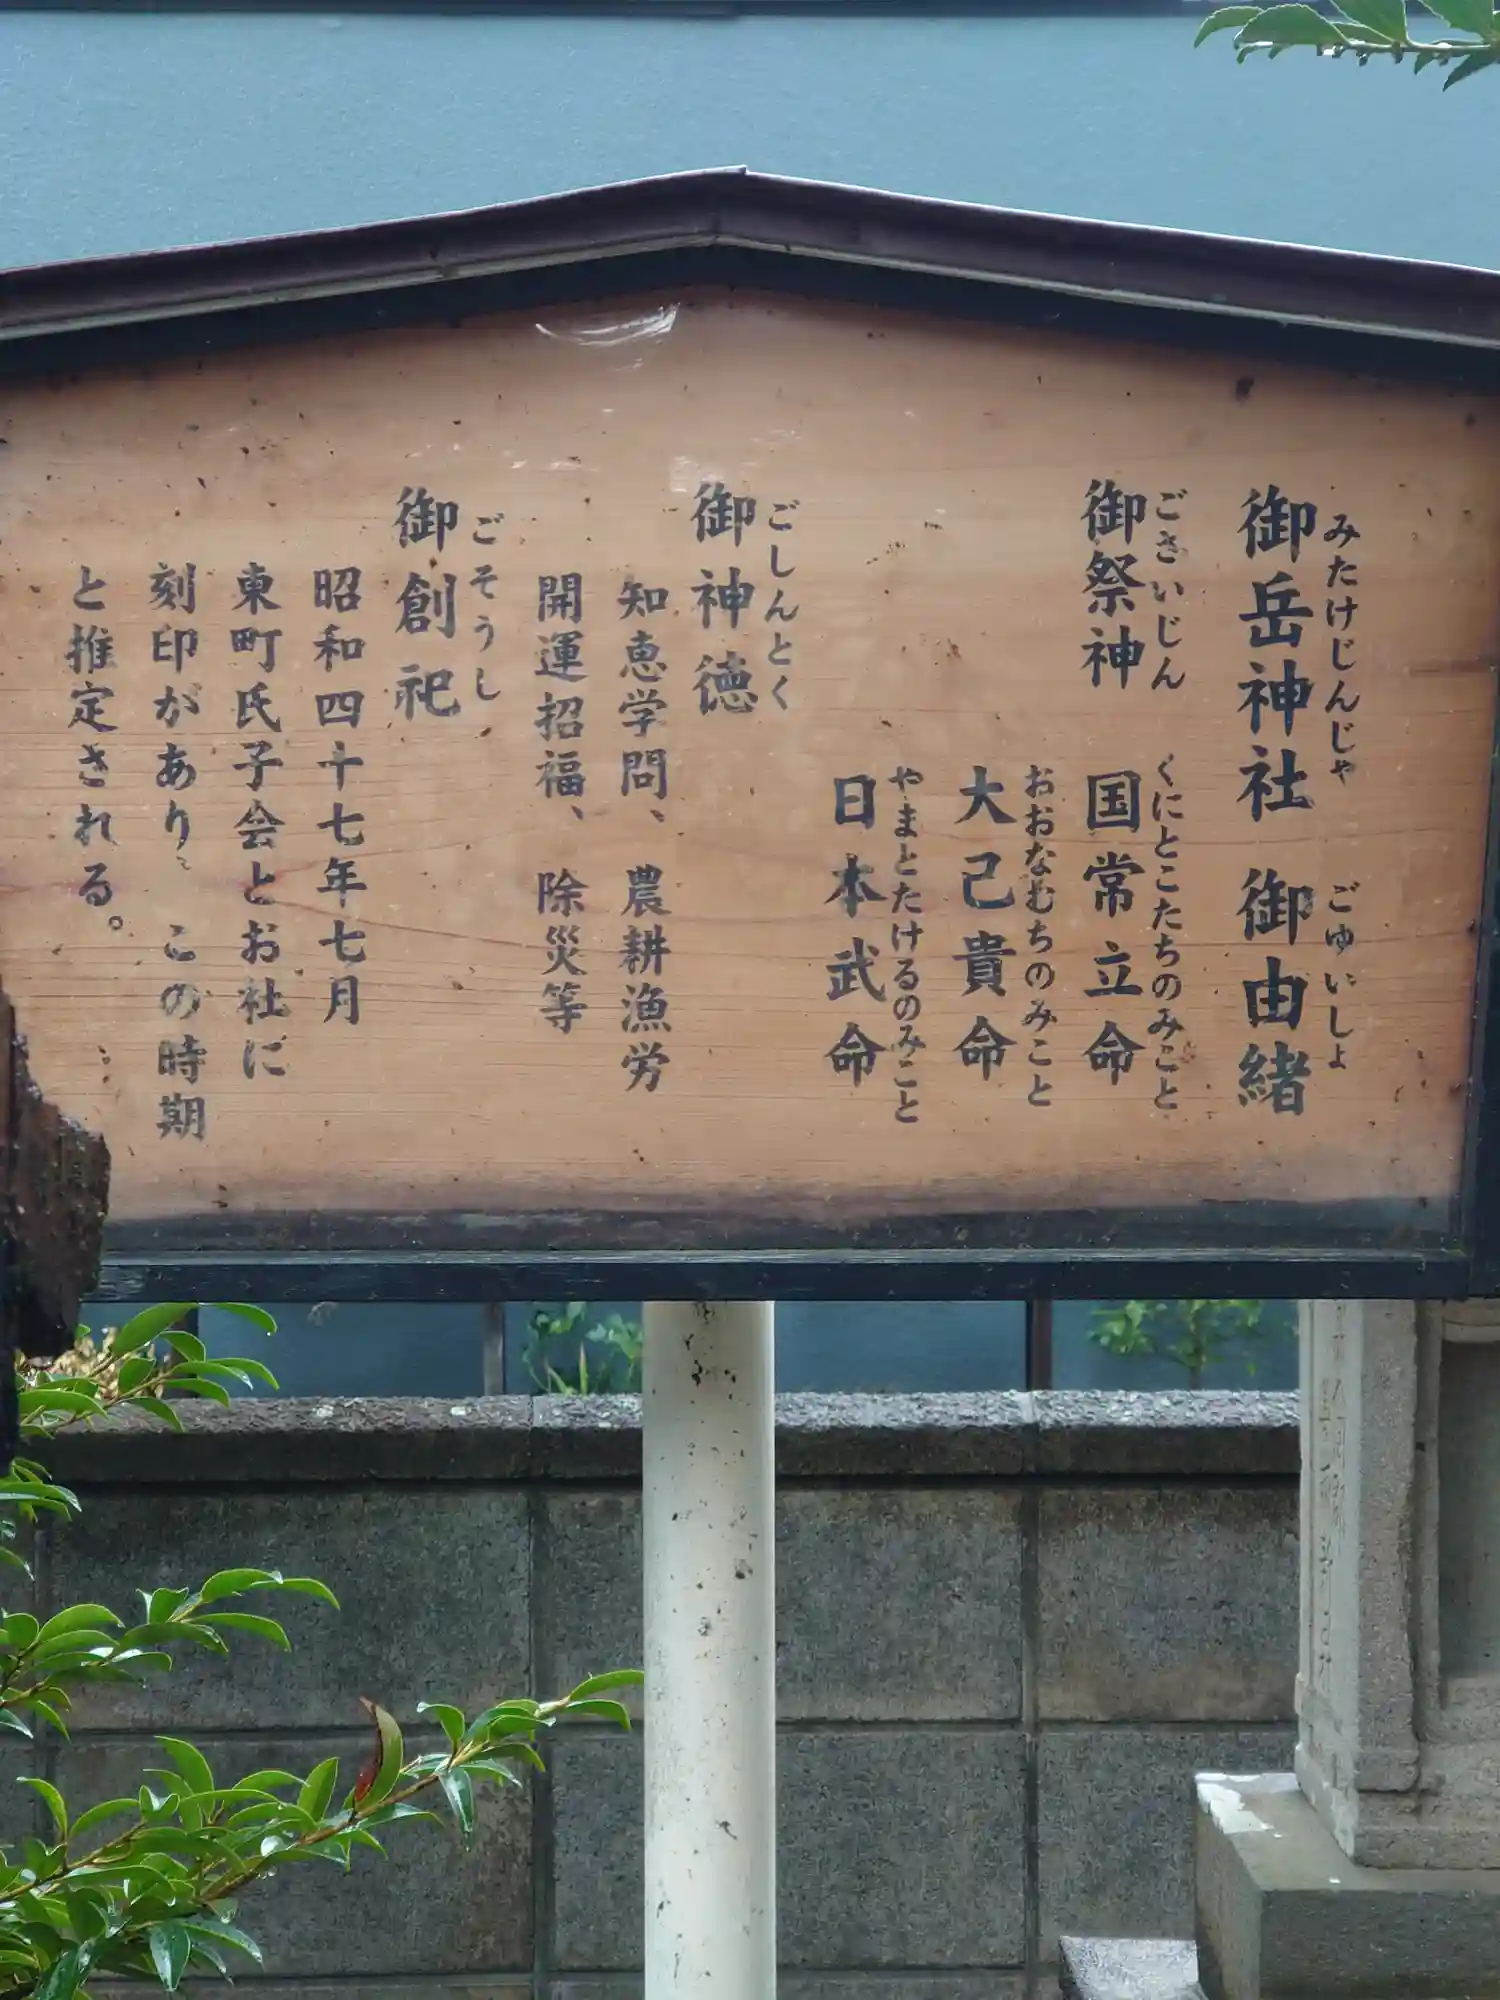 みたけじんじゃ ごゆいしょ
御岳神社 御由緒
ごさいじん くにとこたちのみこと
御祭神 国常立命
おおなむちのみこと
大己貴命
やまとたけるのみこと
日本武命
ごしんとく
御神徳
知恵学問、農耕漁労
開運招福、除災等
ごそうし
御創祀
昭和四十七年七月
東町氏子会とお社に
刻印があり、この時期
と推定される。